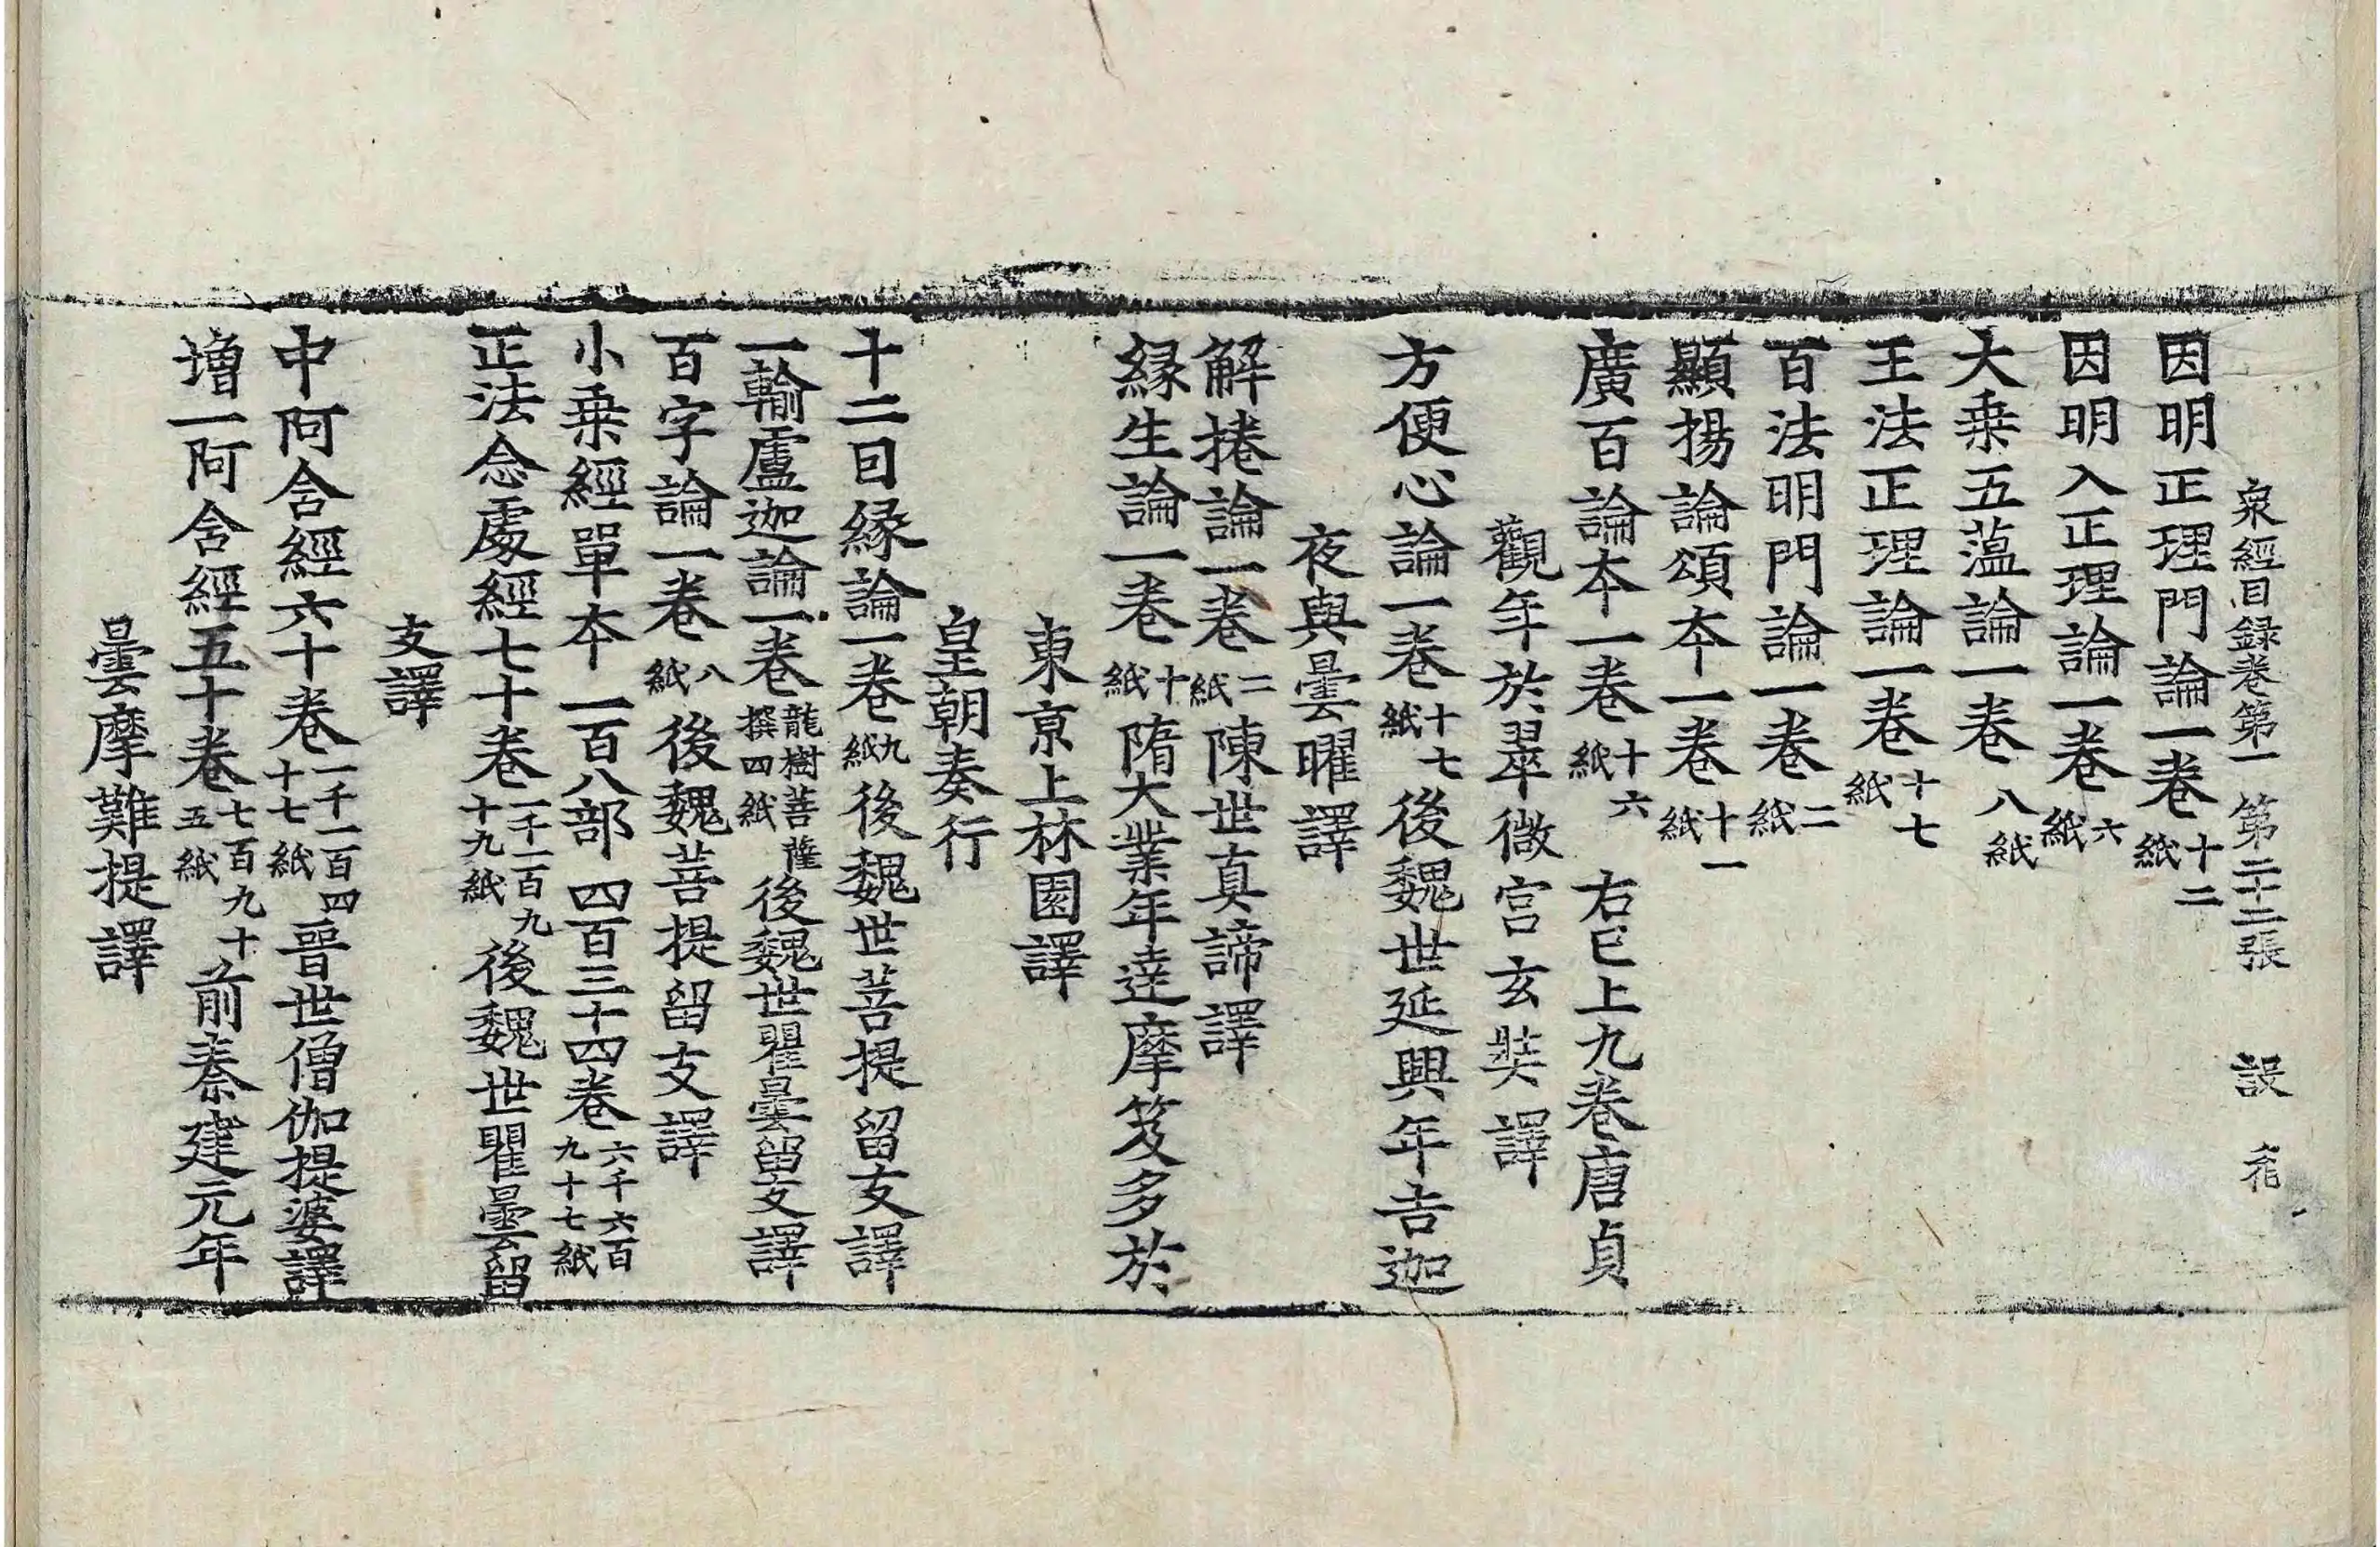 衆經目録卷第一 第二十二張 設
因明正理門論一卷十二紙
因明入正理論一卷六紙
大乗五蕰論一卷八紙
王法正理論一卷十七紙
百法明門論一卷二紙
顯揚論頌夲一卷十一紙
廣百論夲一卷十六紙 右巳上九卷唐貞
觀年於翠微宫玄奘譯
方便心論一卷十七紙後魏世延興年吉迦
夜與曇曜譯
解捲論一卷二紙陳世真諦譯
縁生論一卷十紙隋大業年達摩笈多於
東京上林園譯
皇朝奏行
十二因縁論一卷九紙後魏世菩提留支譯
一輸盧迦論一卷龍樹菩薩撰四紙後魏世瞿曇留支譯
百字論一卷八紙後魏菩提留支譯
小乗經單夲 一百八部 四百三十四卷六千六百九十七紙
正法念處經七十卷一千一百九十九紙後魏世瞿曇留
支譯
中阿含經六十卷一千一百四十七紙晉世僧伽提婆譯
增一阿含經五十卷七百九十五紙前秦建元年
曇摩難提譯